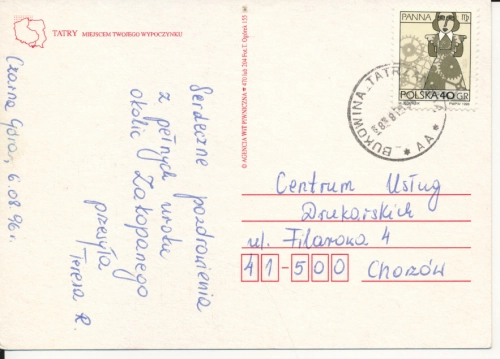 TATRY MIEJSCEM TWOJEGO WYPOCZYNKU
Czarna Góra, 6.08.96r.
Serdeczne pozdrowienia
z pełnych uroku
okolic Zakopanego
przesyła
Teresa R.
© AGENCJA WIT POWNICZNA ★ 470/mb 204 Fot. T. Ogórek 155
PANNA
POLSKA 40 GR
BUKOWINA TATRZ
★ AA ★
Centrum Usług
Drukarskich
ul. Filarowa 4
41-500 Chorzów